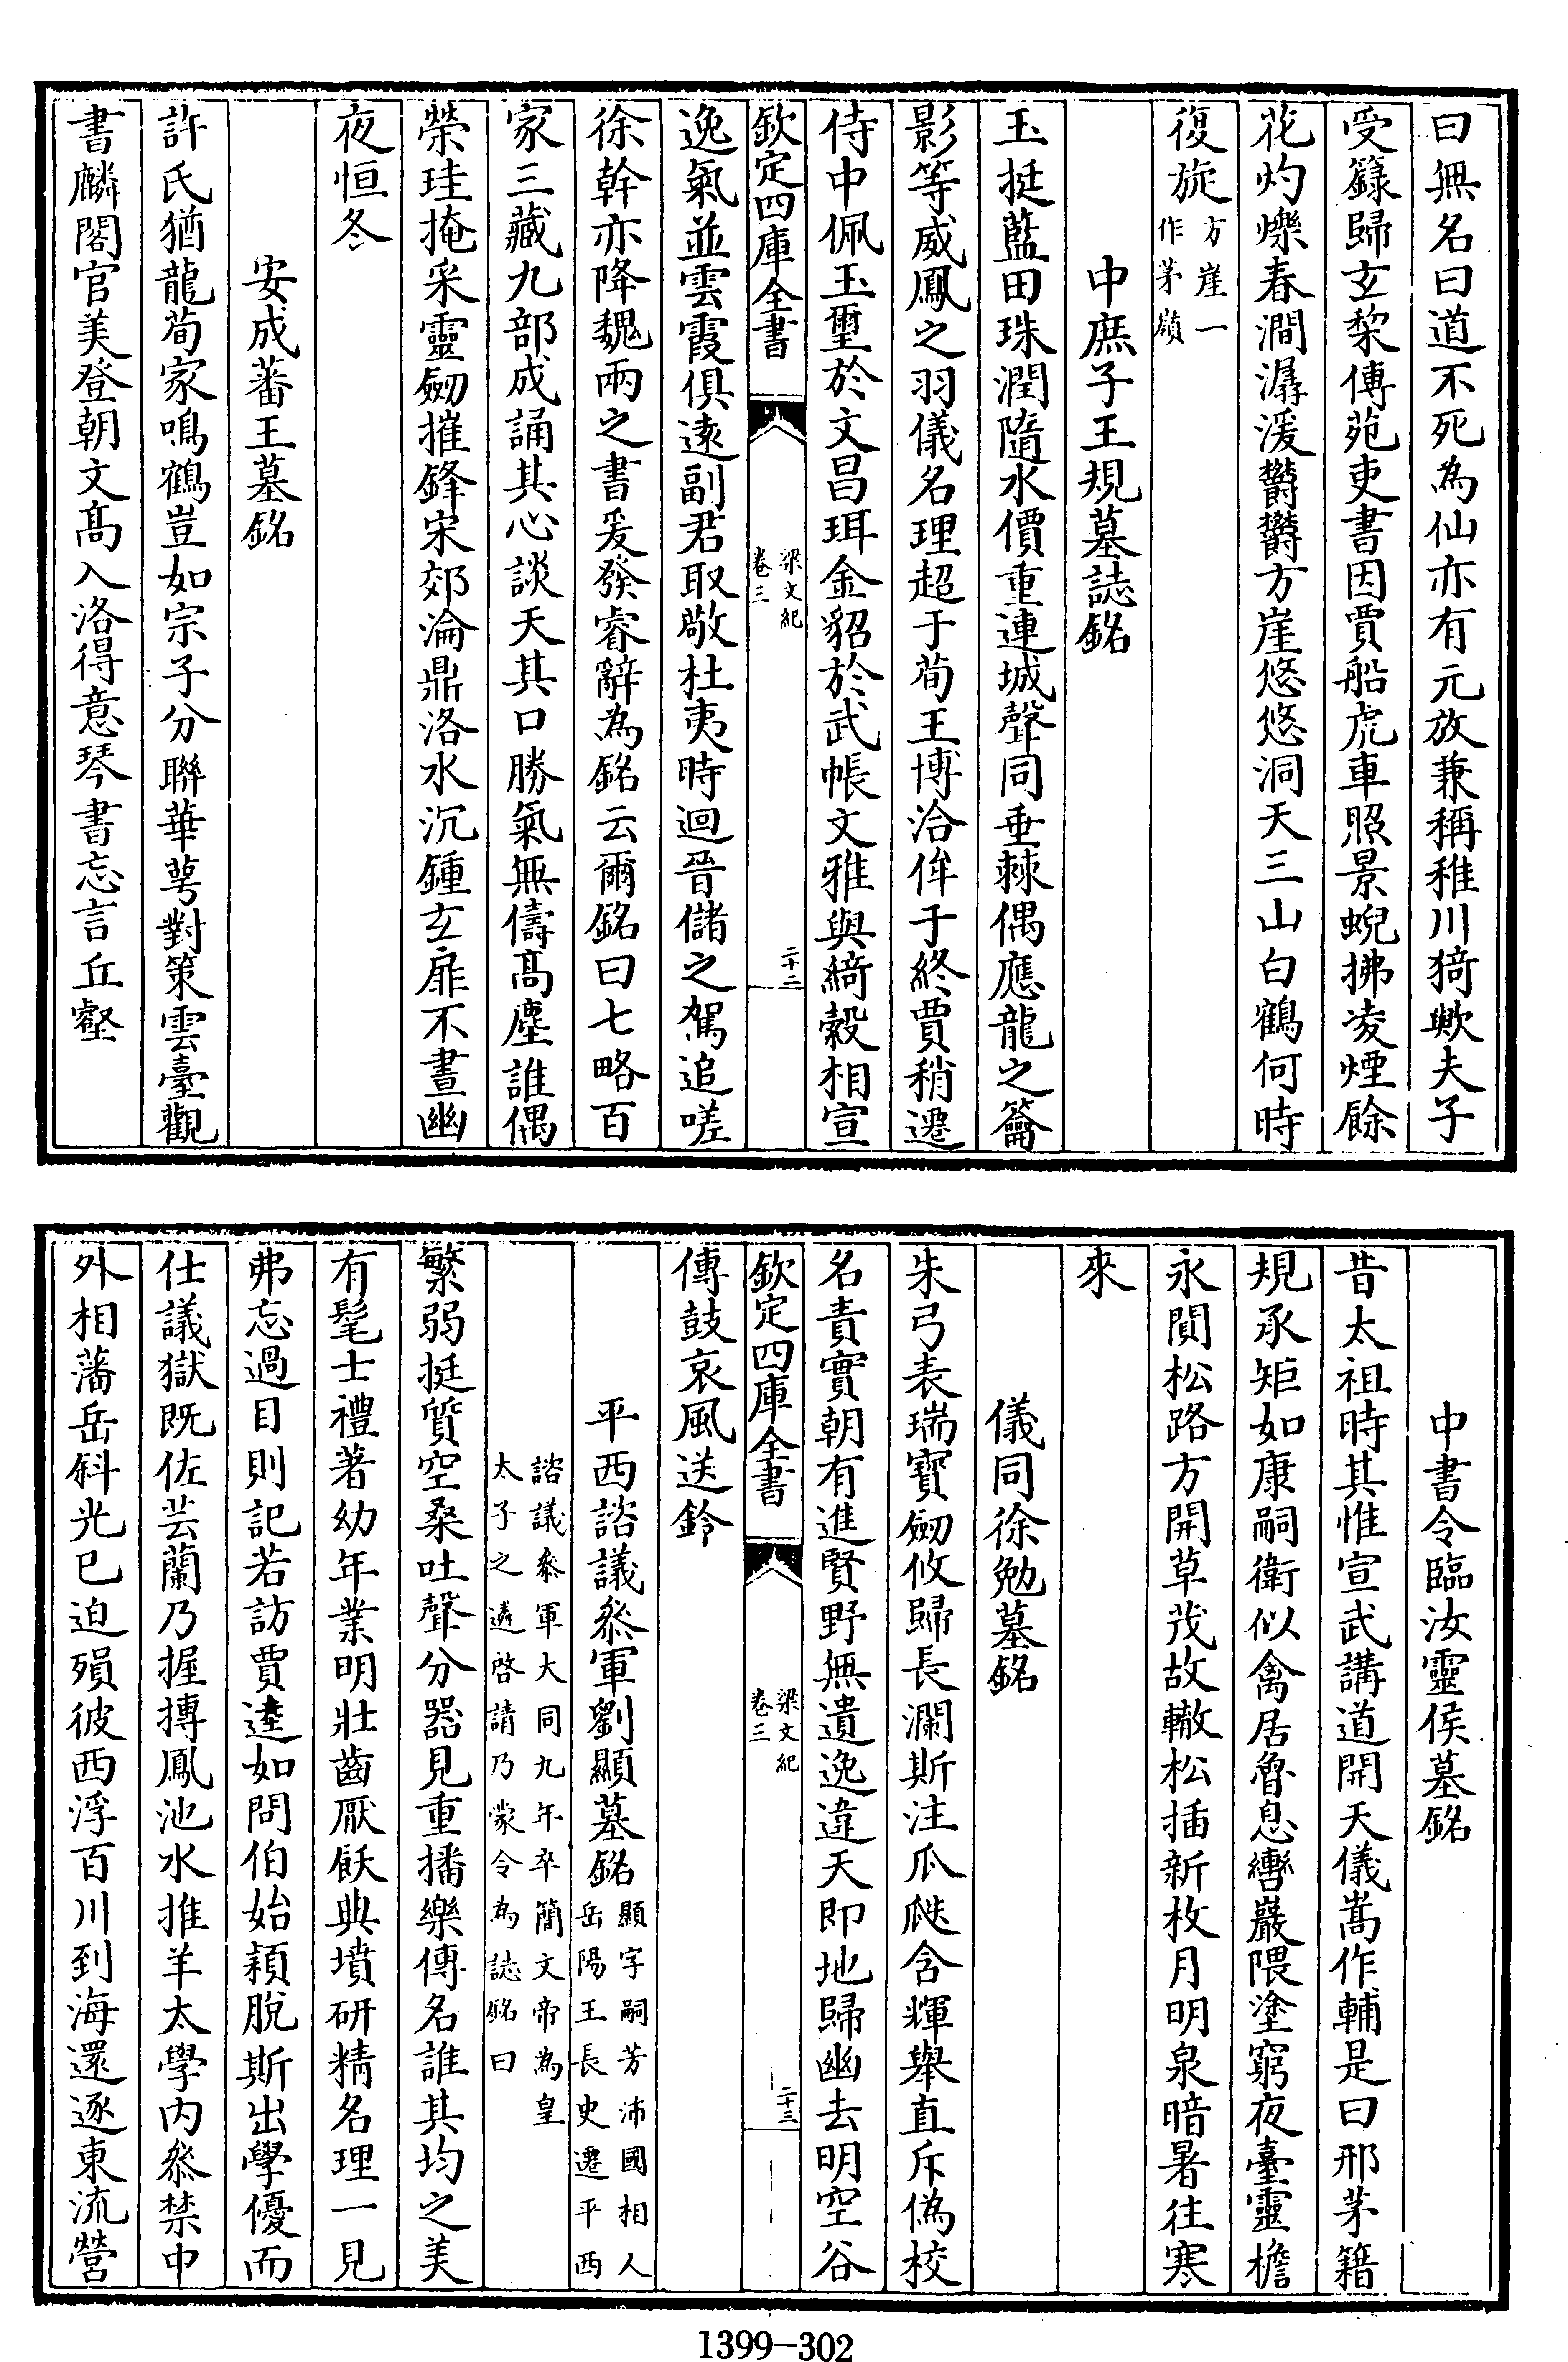 曰無名曰道不死為仙亦有元放兼稱稚川猗歟夫子
受籙歸玄黎傅苑吏書因賈船虎車照景蜺拂凌煙餘
花灼爍春澗潺湲欝欝方崖悠悠洞天三山白鶴何時
復旋方崖一作茅嶺
中庶子王規墓誌銘
玉挺藍田珠潤隨水價重連城聲同垂棘偶應龍之籥
影等威鳳之羽儀名理超于荀王博洽侔于終賈稍遷
侍中佩玉璽於文昌珥金貂於武帳文雅與綺縠相宣
欽定四庫全書
梁文紀
卷三
二十二
逸氣並雲霞俱遠副君取敬杜夷時迴晉儲之駕追嗟
徐幹亦降魏兩之書爰發睿辭為銘云爾銘曰七略百
家三藏九部成誦其心談天其口勝氣無儔高塵誰偶
榮珪掩采靈劒摧鋒宋郊淪鼎洛水沉鍾玄扉不晝幽
夜恒冬
安成蕃王墓銘
許氏猶龍荀家鳴鶴豈如宗子分聯華萼對策雲臺觀
書麟閣官美登朝文高入洛得意琴書忘言丘壑
中書令臨汝靈侯墓銘
昔太祖時其惟宣武講道開天儀嵩作輔是曰邢茅籍
規承矩如康嗣衛似禽居魯息轡巖隈塗窮夜臺靈檐
永閴松路方開草茂故轍松插新枚月明泉暗暑往寒
來
儀同徐勉墓銘
朱弓表瑞寶劒攸歸長瀾斯注瓜瓞含輝舉直斥偽校
名責實朝有進賢野無遺逸違天即地歸幽去明空谷
欽定四庫全書
梁文紀
卷三
二十三
傳鼓哀風送鈴
平西諮議叅軍劉顯墓銘顯字嗣芳沛國相人岳陽王長史遷平西
諮議叅軍大同九年卒簡文帝為皇
太子之遴啓請乃蒙令為誌銘曰
繁弱挺質空桑吐聲分器見重播樂傳名誰其均之美
有髦士禮著幼年業明壯齒厭飫典墳研精名理一見
弗忘過目則記若訪賈逵如問伯始穎脫斯出學優而
仕議獄既佐芸蘭乃握搏鳳池水推羊太學內叅禁中
外相藩岳斜光已迫殞彼西浮百川到海還逐東流營
1399-302